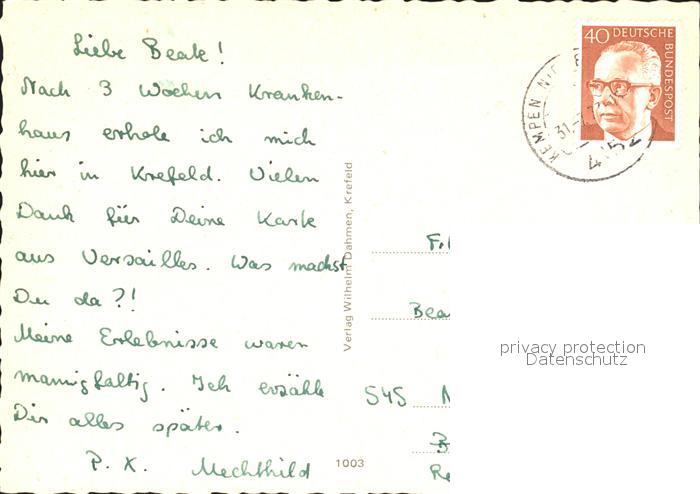 Liebe Beate!
Nach 3 Wochen Kranken-
haus erhole ich mich
hier in Krefeld. Vielen
Dank für Deine Karte
aus Versailles. Was machst
Du da?!
Meine Erlebnisse waren
mannigfaltig. Ich erzähle
Dir alles später.
P. X. Mechthild
Verlag Wilhelm Dahmen, Krefeld
1003
40 DEUTSCHE
BUNDESPOST
KEMPEN
31.-7.
4152
Bea
545
privacy protection
Datenschutz